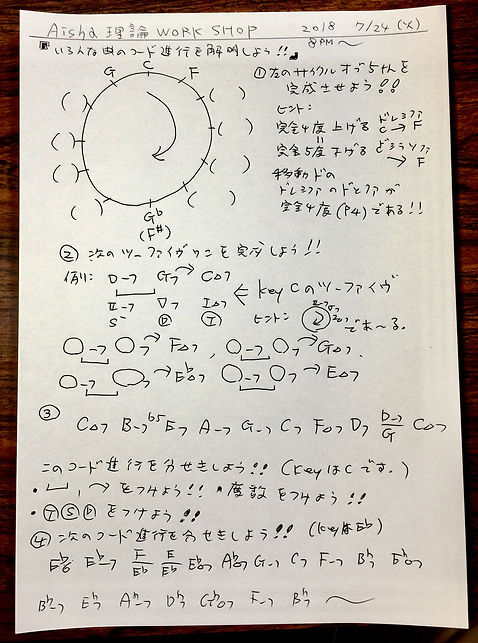 Aisha 理論 WORK SHOP 2018 7/24(火)
『いろんな曲のコード進行を解明しよう!!』 8PM〜
C
G F
( ) ( )
( ) ( )
( ) ( )
( ) ( )
G♭
(F#)
① 左のサイクルオブちゃんを
完成させよう!!
ヒント:
完全4度上げる ドレミファ C→F
完全5度下げる どしらソファ →F
移動ドの
ドレミファのドとファが
完全4度(P4)である!!
② 次のツーファイヴワンを完成しよう!!
例に: D-7 G7 C△7
II-7 V7 I△7 ⇐ Key Cのツーファイヴ
S D T ヒント: であ〜る.
○-7 ○7 F△7 , ○-7 ○7 G△7.
○-7 ○7 E♭△7 ○-7 ○7 E△7
③
C△7 B-7b5 E7 A-7 G-7 C7 F△7 D7 D-7/G C△7
このコード進行を分せきしよう!! (KeyはCです。)
・ 、 をつけよう!! ・度数をつけよう!!
・ⓉⓈⒹをつけよう!!
④ 次のコード進行を分せきしよう!! (KeyはE♭)
E♭6 E♭-7 F/E♭ E/E♭ E♭△7 A♭△7 G-7 C7 F-7 B♭7 E♭△7
B♭-7 E♭7 A♭-7 D♭7 G♭△7 F-7 B♭7 〜